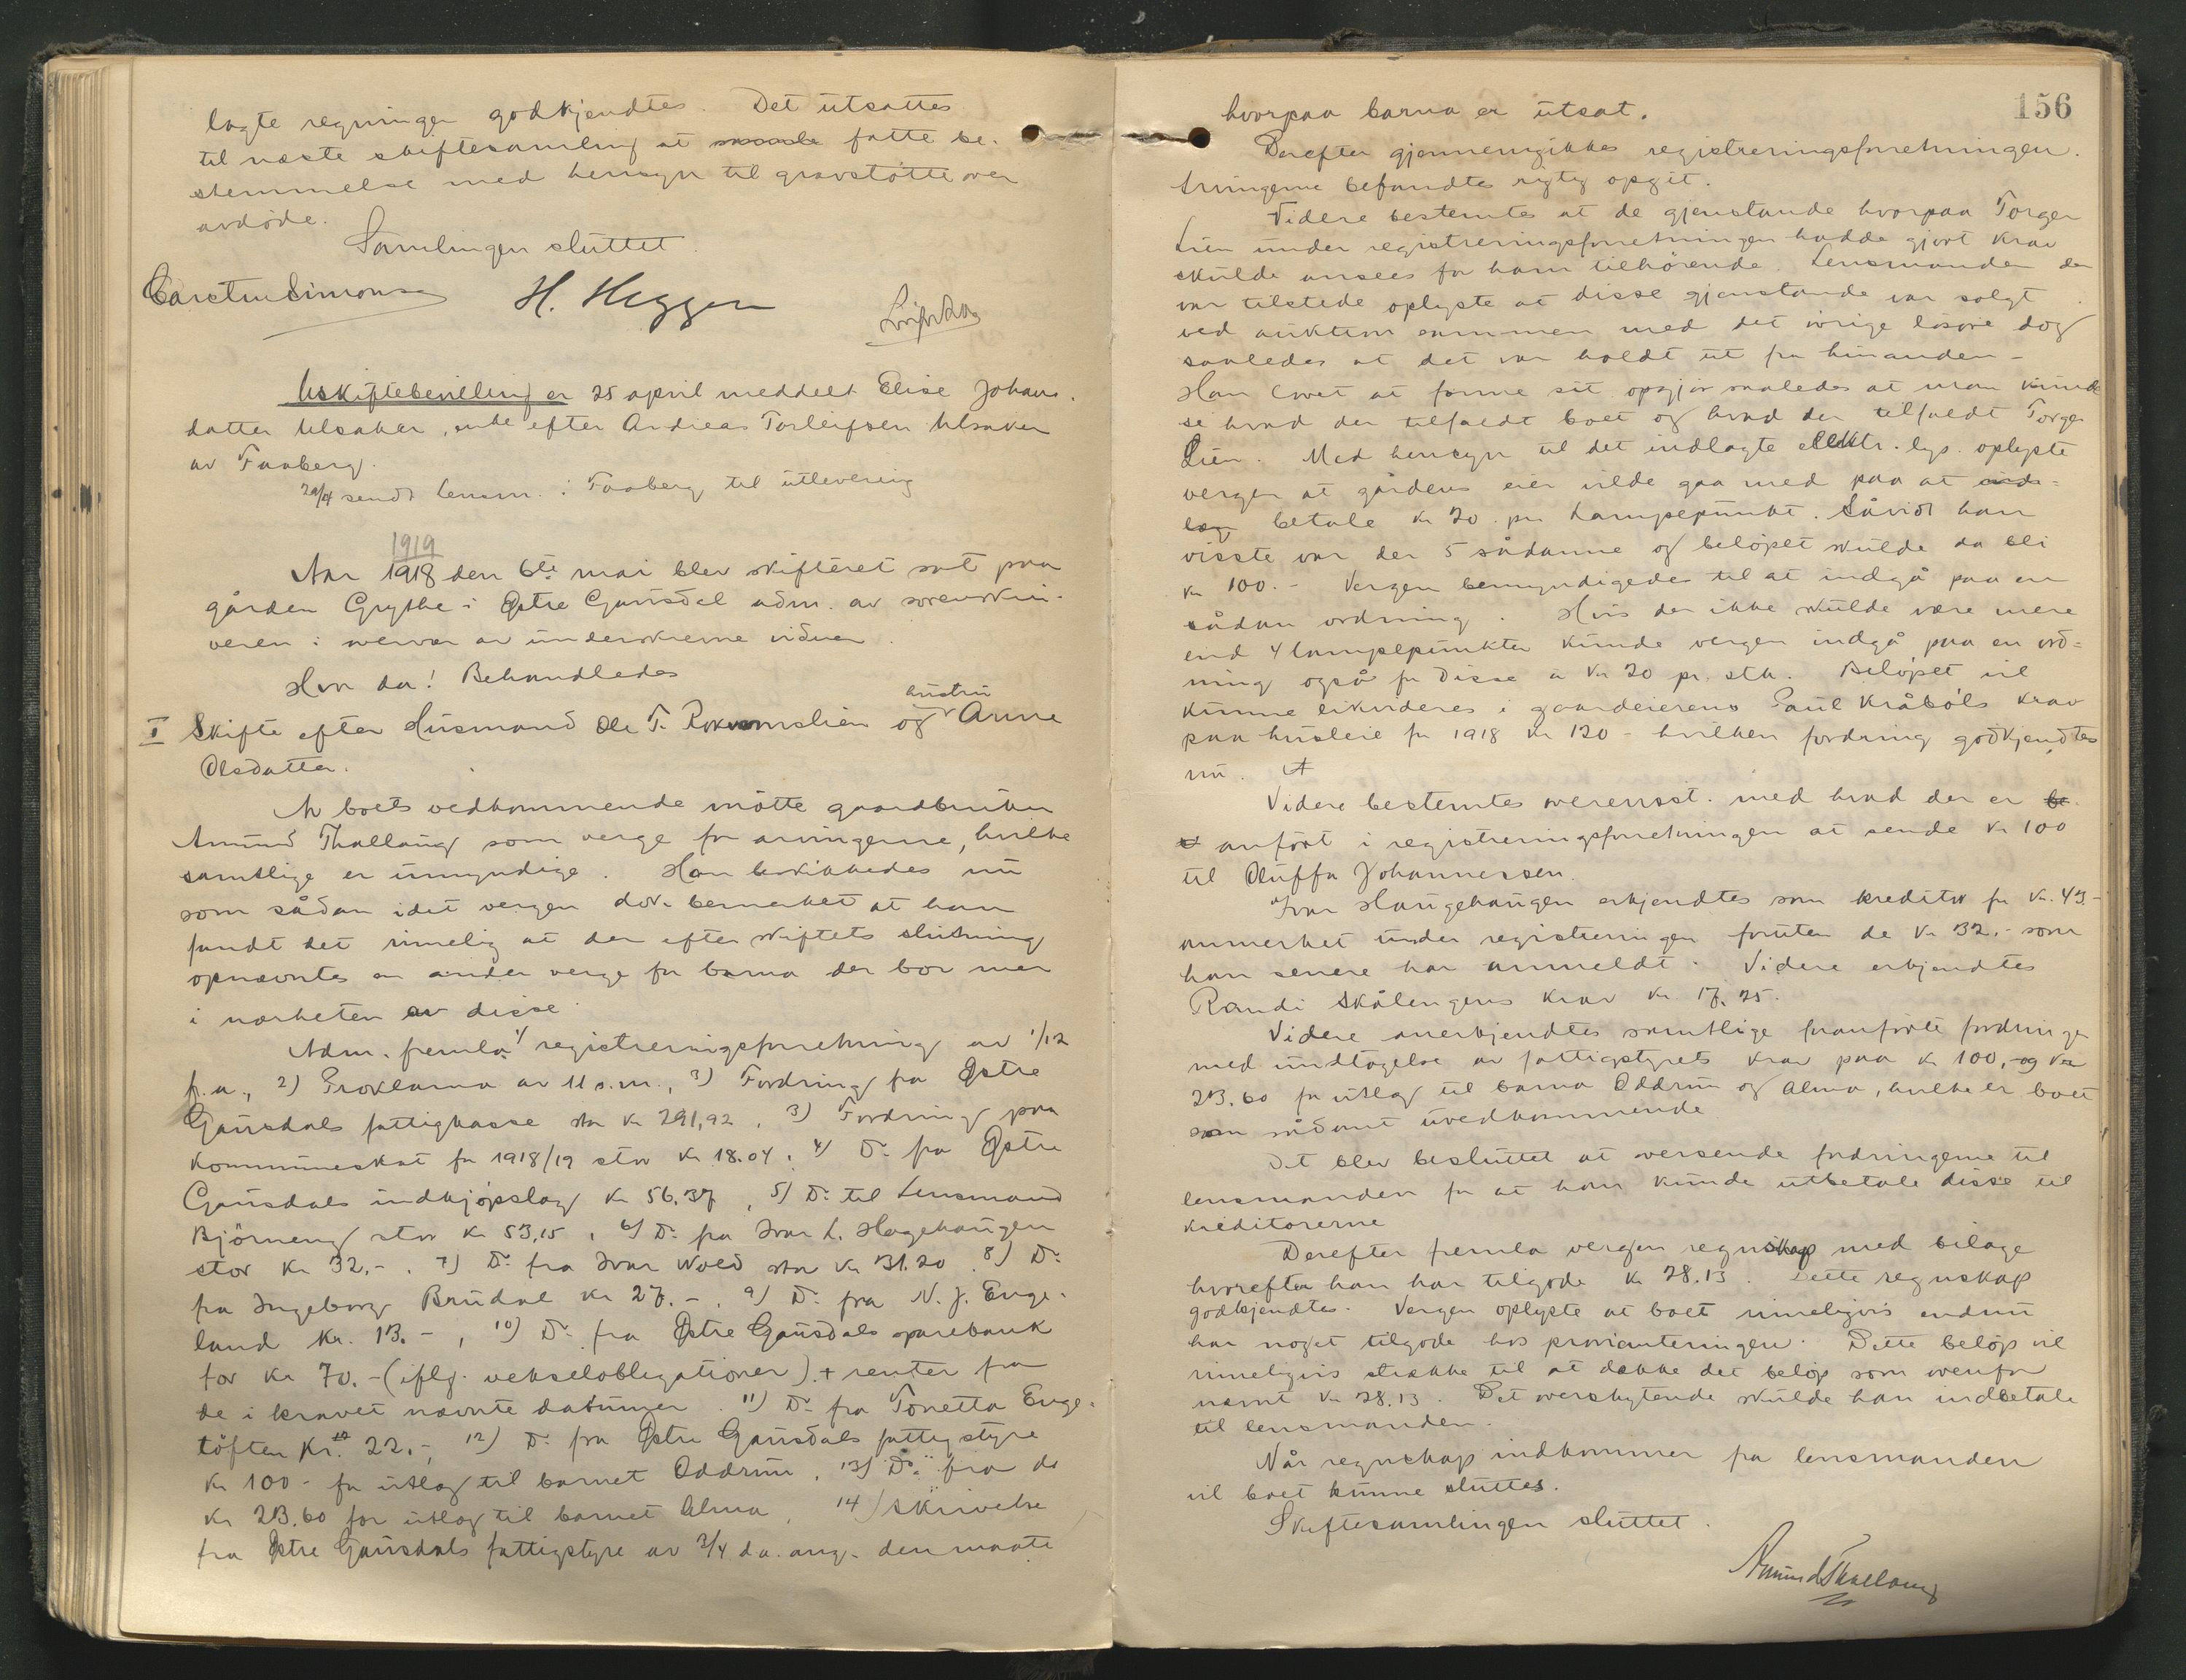 lagte regninger godkjendtes. Det utsattes
til næste skiftesamling at fatte be-
stemmelse med hensyn til gravstøtte over
avdøde.
Samlingen sluttet.
Carsten Simonsen H. Heggen
Uskiftebevilling er 25 april meddelt Elise Johans-
datter Ulsaker, enke efter Andreas Torleifsen Ulsaker
av Faaberg.
28/4 sendt lensm. i Faaberg til utlevering
1919
Aar 1918 den 6te mai blev skifteret sat paa
gården Grythe i Østre Gausdal adm. av sorenskri-
veren i nærvær av underskrevne vidner.
Hvor da! Behandledes
hustru
I Skifte efter Husmand Ole T. Rokvamslien og Anne
Olsdatter.
Av boets vedkommende møtte gaardbruker
Amund Thallaug som verge for arvingerne, hvilke
samtlige er umyndige. Han beskikkedes nu
som sådan idet vergen dok bemerket at han
fandt det rimelig at der efter skiftets slutning
opnævntes en anden verge for barna der bor mer
i nærheten av disse.
Adm. fremla 1) registreringsforretning av 1/12
f.a., 2) Proklama av 11 s.m., 3) Fordring fra Østre
Gausdals fattigkasse stor kr 291,92, 3) Fordring paa
kommuneskat for 1918/19 stor kr 18.04, 4) Do fra Østre
Gausdals indkjøpslag kr 56.37, 5) Do til Lensmand
Bjørneng stor kr 53,15, 6) Do fra Ivar L. Hagehaugen
stor kr 32.-, 7) Do fra Ivar Wold stor kr 31.20. 8) Do
fra Ingeborg Brudal kr 27.-, 9) Do fra N. J. Enge-
land kr. 13.-, 10) Do fra Østre Gausdals sparebank
for kr 70.- (iflg. vekselobligationer) + renter fra
de i kravet nævnte datumer. 11) Do fra Tonetta Enge-
tøften kr. 22.-, 12) Do fra Østre Gausdals fattigstyre
kr 100- for utlæg til barnet Oddrun, 13) Do fra do
kr 23.60 for utlæg til barnet Alma, 14) skrivelse
fra Østre Gausdals fattigstyre av 3/4 d.a. ang. den maate
156
hvorpaa barna er utsat.
Derefter gjennemgikkes registreringsforretningen.
Arvingerne befandtes rigtig opgit.
Videre bestemtes at de gjenstande hvorpaa Torger
Lien under registreringsforretningen hadde gjort krav
skulde ansees for ham tilhørende. Lensmanden der
var tilstede oplyste at disse gjenstande var solgt
ved auktion sammen med det øvrige løsøre dog
saaledes at det var holdt ut fra hinanden -
Han lovet at forme sit opgjør saaledes at man kunde
se hvad der tilfaldt boet og hvad der tilfaldt Torger
Lien. Med hensyn til det indlagte elektr. lys oplyste
vergen at gårdens eier vilde gaa med paa at ind-
læg betale kr 20 pr lampepunkt. Såvidt han
visste var der 5 sådanne og beløpet skulde da bli
kr 100.- Vergen bemyndigedes til at indgå paa en
sådan ordning. Hvis der ikke skulde være mere
end 4 lampepunkter kunde vergen indgå paa en ord-
ning også for disse à kr 20 pr. stk. Beløpet vil
kunne likvideres i gaardeierens Paul Kråbøls krav
paa husleie for 1918 kr 120- hvilken fordring godkjendtes
nu.
Videre bestemtes overensst. med hvad der er be-
anført i registreringsforretningen at sende kr 100
til Oluffa Johannessen.
Ivar Haugehaugen erkjendtes som kreditor for kr. 43-
anmerket under registreringen foruten de kr 32.- som
han senere har anmeldt. Videre erkjendtes
Randi Skålengens krav kr. 17.25.
Videre anerkjendtes samtlige foranførte fordringer
med undtagelse av fattigstyrets krav paa kr 100,- og kr
23.60 for utlæg til barna Oddrun og Alma, hvilke er boet
som sådant uvedkommende
Det blev besluttet at oversende fordringerne til
lensmanden for at han kunde utbetale disse til
kreditorerne
Derefter fremla vergen regnskap med bilage
hvorefter han har tilgode kr 28.13. Dette regnskap
godkjendtes. Vergen oplyste at boet rimeligvis endnu
har noget tilgode hos provianteringen. Dette beløp vil
rimeligvis strække til at dække det beløp som ovenfor
nævnt kr 28.13. Det overskytende skulde han indbetale
til lensmanden.
Når regnskap indkommer fra lensmanden
vil boet kunne sluttes.
Skiftesamlingen sluttet.
Amund Thallaug